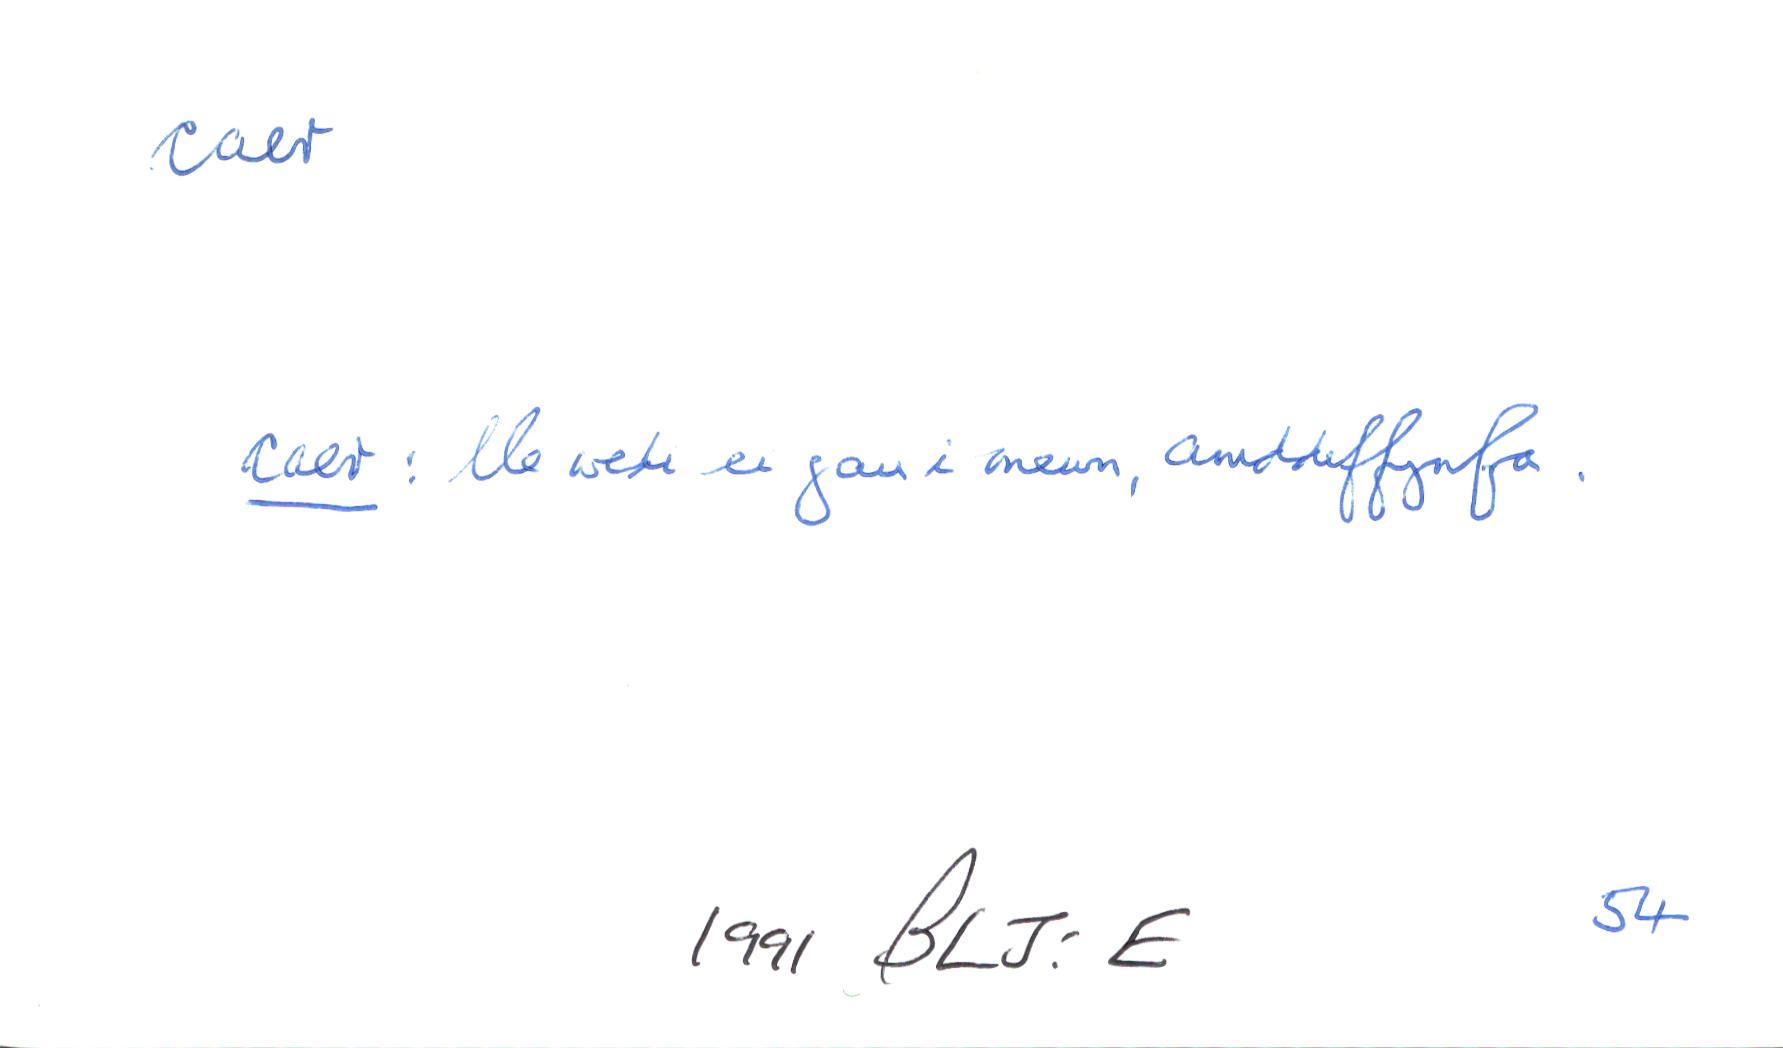 caer
caer : lle wedi ei gau i mewn, amddiffynfa .
1991 BLJ: E
54